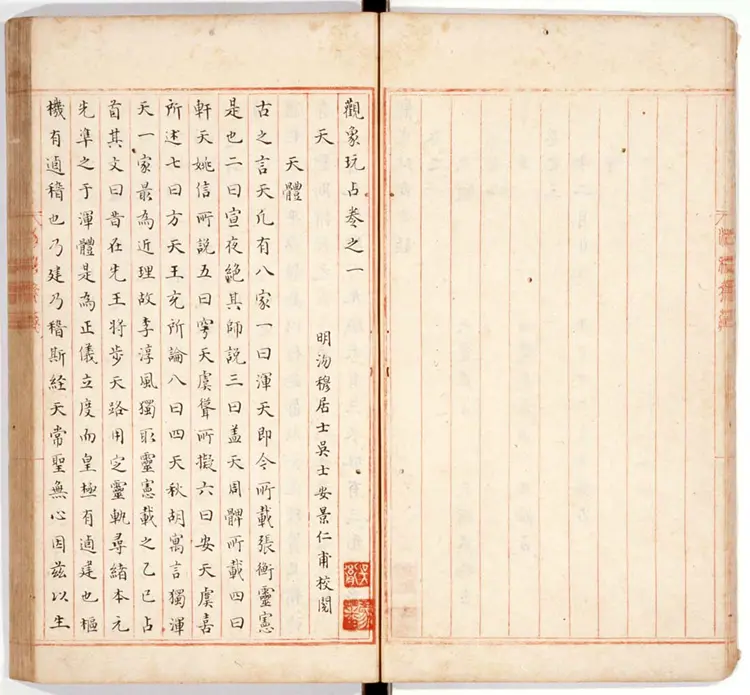 觀象玩占卷之一
明沕穆居士吳士安景仁甫校閱
天
天體
古之言天凡有八家一曰渾天即今所載張衡靈憲
是也二曰宣夜絕其師說三曰盖天周髀所載四曰
軒天姚信所說五曰穹天虞聳所擬六曰安天虞喜
所述七曰方天王充所論八曰四天秋胡寓言獨渾
天一家最為近理故李淳風獨取靈憲載之乙巳占
首其文曰昔在先王将步天路用定靈軌尋緒本元
先準之于渾體是為正儀立度而皇極有逌建也樞
機有逌稽也乃建乃稽斯経天常聖無心因茲以生